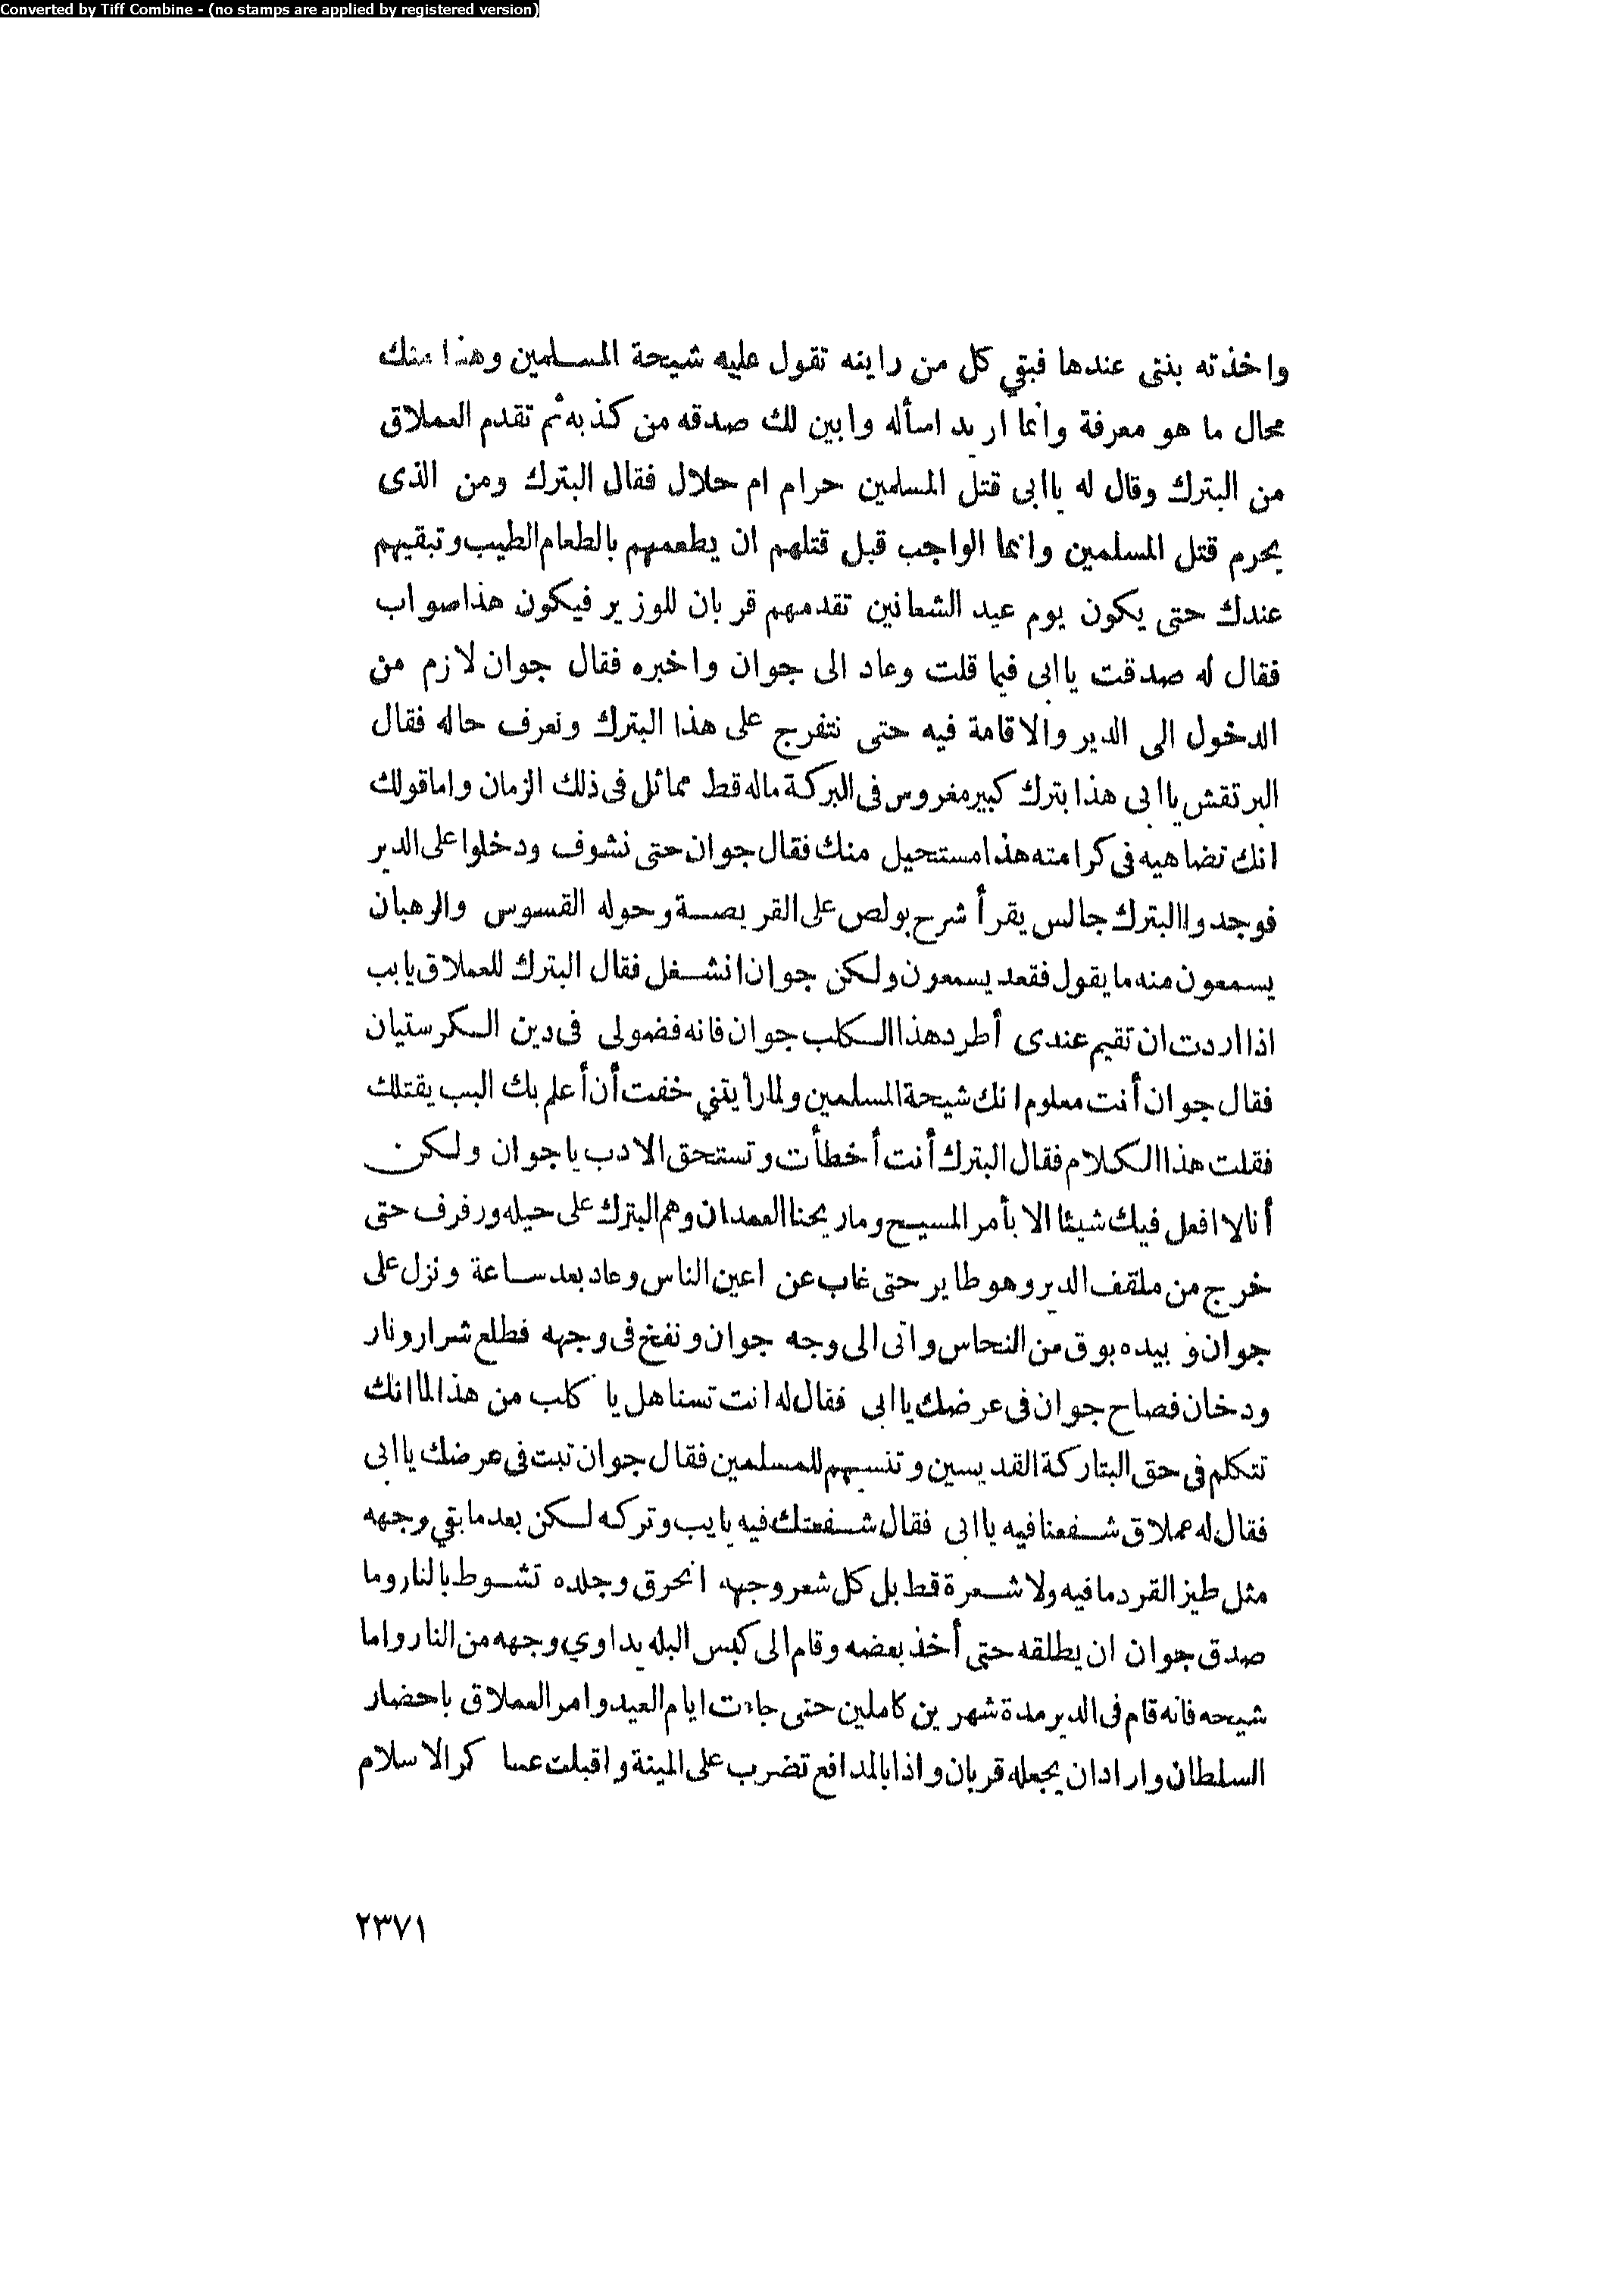 Converted by Tiff Combine - (no stamps are applied by registered version)
واخذته بنتى عندها فبقي كل من رايته تقول عليه شيحة المسلمين وهذا منك
محال ما هو معرفة وانما اريد اسأله وابين لك صدقه من كذبه ثم تقدم العملاق
من البترك وقال له ياابى قتل المسلمين حرام ام حلال فقال البترك ومن الذى
يحرم قتل المسلمين وانما الواجب قبل قتلهم ان يطعمهم بالطعام الطيب وتبقيهم
عندك حتى يكون يوم عيد الشعانين تقدمهم قربان للوزير فيكون هذا صواب
فقال له صدقت ياابى فيما قلت وعاد الى جوان واخبره فقال جوان لازم من
الدخول الى الدير والاقامة فيه حتى نتفرج على هذا البترك ونعرف حاله فقال
البرتقش ياابى هذا بترك كبير مغروس فى البركة ماله قط مماثل فى ذلك الزمان واما قولك
انك تضاهيه فى كرامته هذا مستحيل منك فقال جوان حتى نشوف ودخلوا على الدير
فوجدوا البترك جالس يقرأ شرح بولص على القريصة وحوله القسوس والرهبان
يسمعون منه ما يقول فقعد يسمعون ولكن جوان انشغل فقال البترك للعملاق يابب
اذا اردت ان تقيم عندى أطرد هذا الكلب جوان فانه فضولى فى دين الكرستيان
فقال جوان أنت معلوم انك شيحة المسلمين ولما رأيتني خفت أن أعلم بك البب يقتلك
فقلت هذا الكلام فقال البترك أنت أخطأت وتستحق الادب ياجوان ولكن
أنا لا افعل فيك شيئا الا بأمر المسيح ومار يحنا العمدان وهم البترك على حيله ورفرف حتى
خرج من ملقف الدير وهو طاير حتى غاب عن اعين الناس وعاد بعد ساعة ونزل على
جوان و بيده بوق من النحاس واتى الى وجه جوان ونفخ فى وجهه فطلع شرار ونار
ودخان فصاح جوان فى عرضك ياابى فقال له انت تستاهل يا كلب من هذا لما انك
تتكلم فى حق البتاركة القديسين وتنسبهم للمسلمين فقال جوان تبت فى عرضك ياابى
فقال له عملاق شفعنا فيه ياابى فقال شفعتك فيه يابب وتركه لكن بعد ما بقي وجهه
مثل طيز القرد ما فيه ولا شعرة قط بل كل شعر وجهه انحرق وجلده تشوط بالنار وما
صدق جوان ان يطلقه حتى أخذ بعضه وقام الى كبس البله يداوي وجهه من النار واما
شيحه فانه قام فى الدير مدة شهرين كاملين حتى جاءت ايام العيد وامر العملاق باحضار
السلطان واراد ان يجعله قربان واذا بالمدافع تضرب على المينة واقبلت عسا كر الاسلام
٢٣٧١